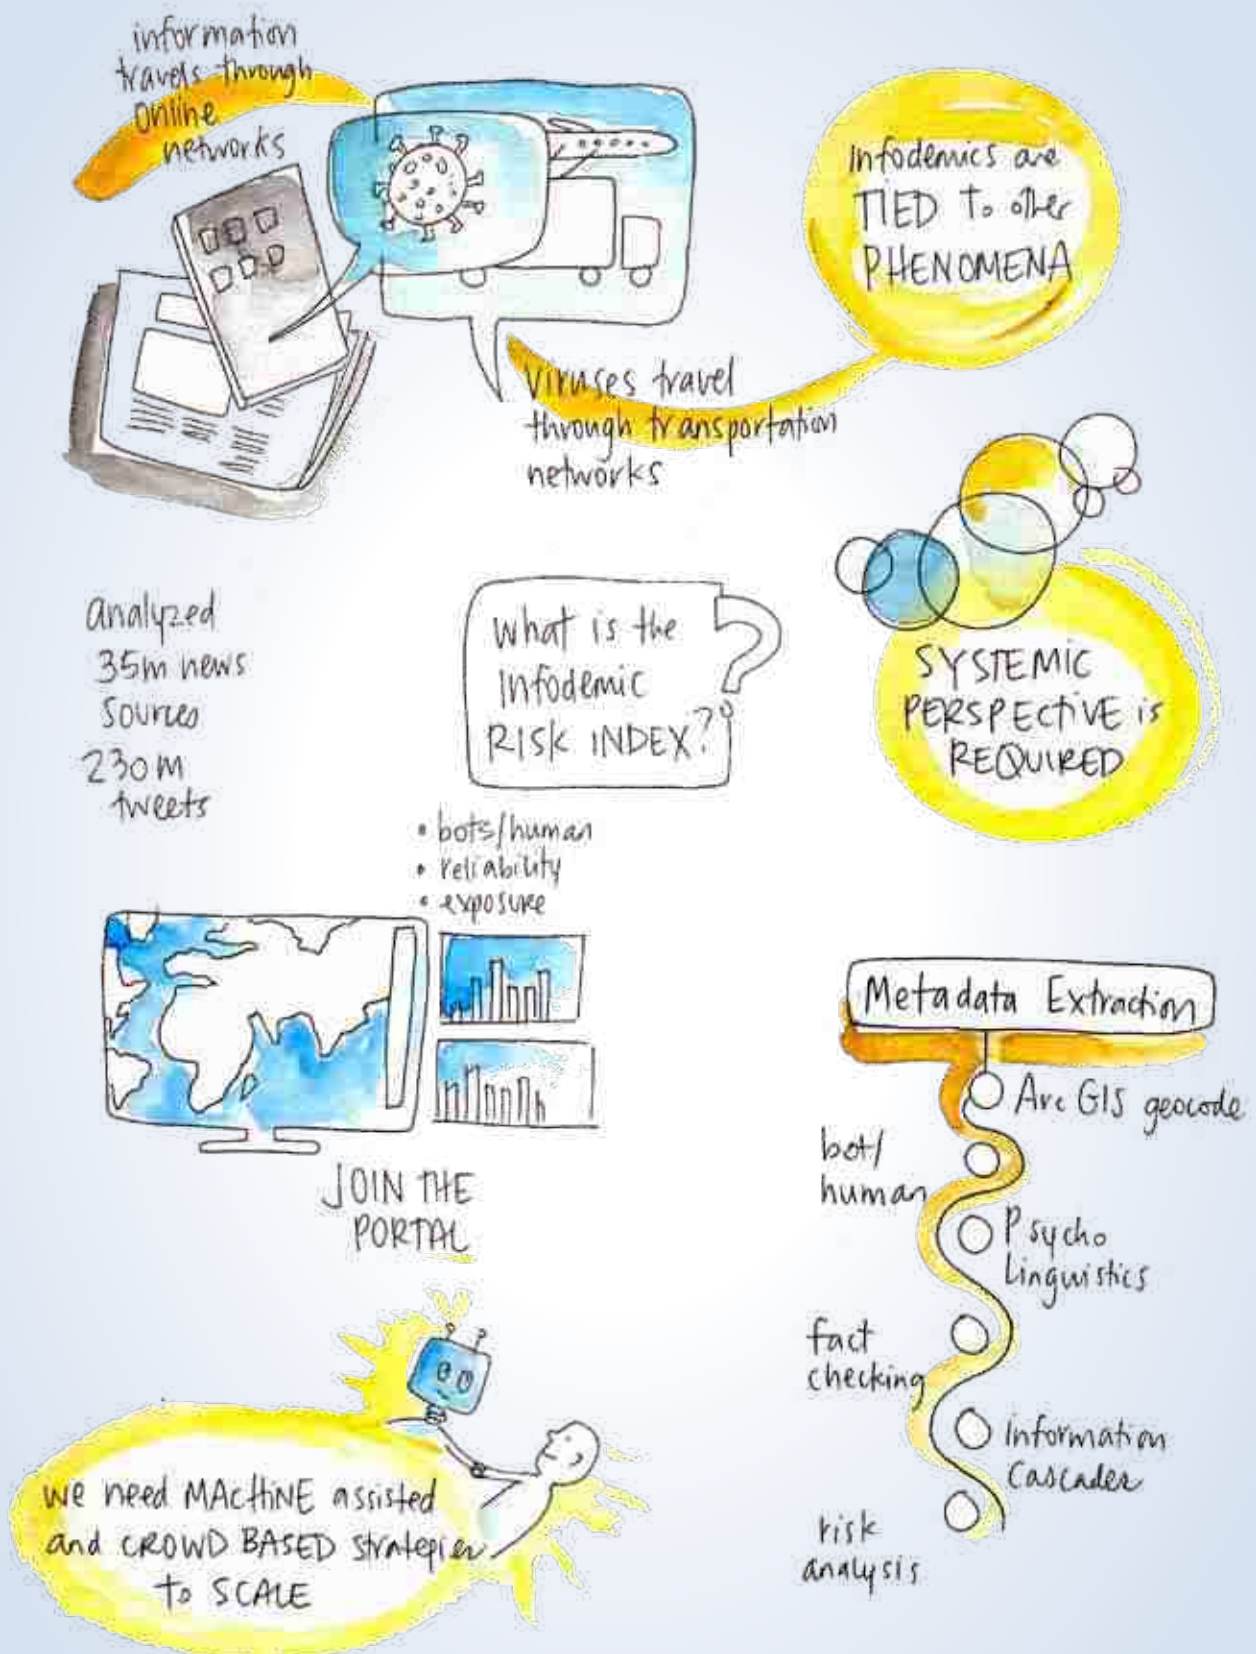 information
travels through
online
networks
Infodemics are
TIED To other
PHENOMENA
Viruses travel
through transportation
networks
analyzed
35m news
Sources
230m
tweets
What is the
Infodemic
RISK INDEX?
?
SYSTEMIC
PERSPECTIVE is
REQUIRED
• bots/human
• reliability
• exposure
JOIN THE
PORTAL
Metadata Extraction
Arc GIS geocode
bot/
human
Psycho
Linguistics
fact
checking
Information
Cascades
risk
analysis
we need MACHINE assisted
and CROWD BASED strategies
to SCALE